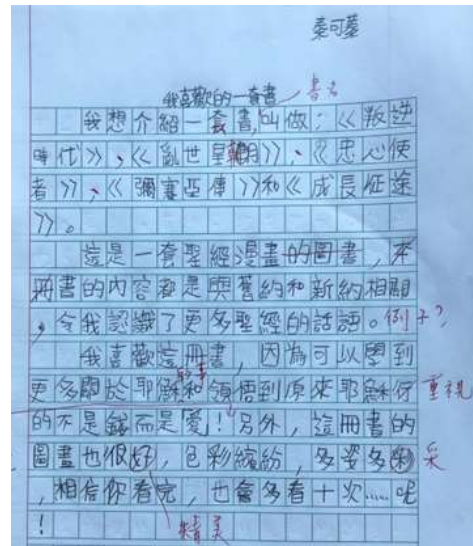 秦可蓥
我喜歡的一套書 書名
我想介紹一套書,叫做:《叛逆
時代》、《亂世皇朝》、《忠心使
者》、《彌賽亞傳》和《成長征途
》。
這是一套聖經漫畫的圖書,
冊書的內容都是與舊約和新約相關
,令我認識了更多聖經的話語。例子?
我喜歡這冊書,因為可以學到
更多關於耶穌的事和領悟到原來耶穌 重視
的不是錢而是愛!另外,這冊書的
圖畫也很好,色彩繽紛,多姿多彩 采
,相信你看完,也會多看十次……呢
! 精美